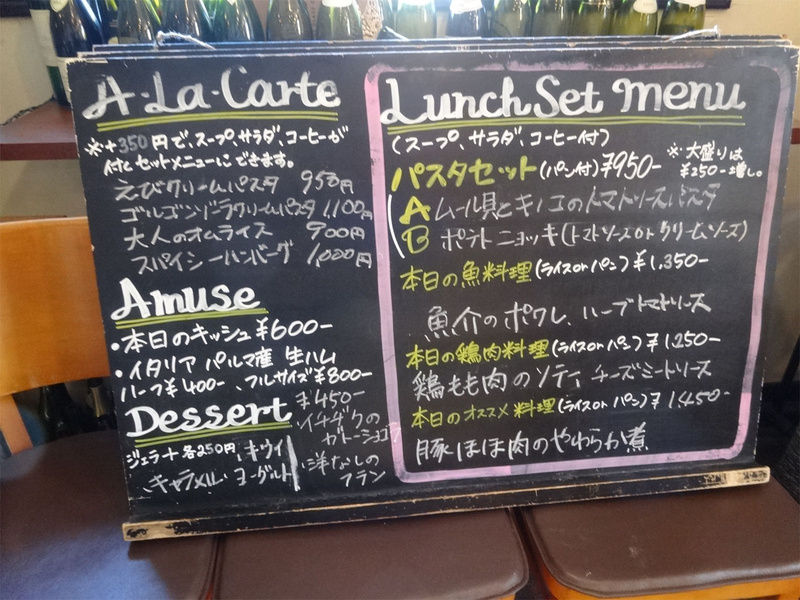 A-La-Carte
※+350円で、スープ、サラダ、コーヒーが
付くセットメニューにできます。
えびクリームパスタ 950円
ゴルゴンゾーラクリームパスタ 1,100円
大人のオムライス 900円
スパイシーハンバーグ 1,000円
Amuse
・本日のキッシュ ¥600-
・イタリア パルマ産 生ハム
ハーフ¥400-、フルサイズ¥800-
Dessert
ジェラート 各250円、キウイ
キャラメル ヨーグルト
¥450-
イチヂクの
ガトーショコラ
洋なしの
フラン
Lunch Set menu
(スープ、サラダ、コーヒー付)
パスタセット(パン付)¥950-
※大盛りは
¥250-増し。
A ムール貝とキノコのトマトソースパスタ
B ポテトニョッキ(トマトソース or クリームソース)
本日の魚料理(ライス or パン)¥1,350-
魚介のポワレ、ハーブトマトソース
本日の鶏肉料理(ライス or パン)¥1,250-
鶏もも肉のソティ チーズミートソース
本日のオススメ料理(ライス or パン)¥1,450-
豚ほほ肉のやわらか煮